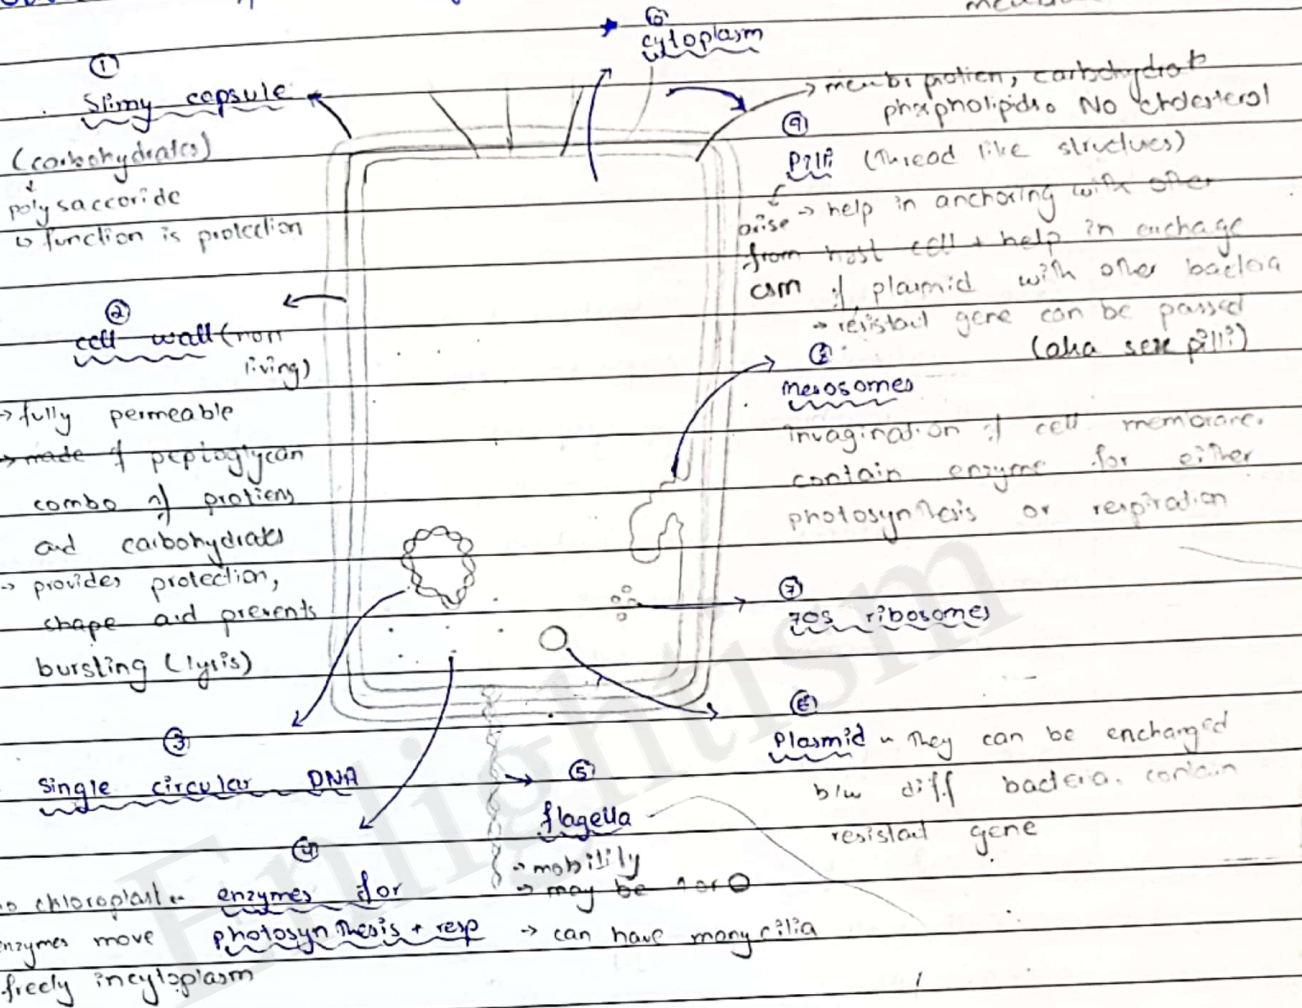 ①
Slimy capsule
(carbohydrates)
polysaccoride
↳ function is protection
②
cell wall (non
living)
→ fully permeable
→ made of peptoglycan
combo of protiens
and carbohydrats
→ provides protection,
shape and prevents
bursting (lysis)
③
Single circular DNA
④
no chloroplast enzymes for
enzymes move photosynthesis + resp
freely in cytoplasm
⑤
flagella
→ mobility
→ may be 1 or 0
→ can have many cilia
⑩
cytoplasm
→ protien, carbohydrat
No cholesterol
⑨
Pilli (thread like structures)
arise → help in anchoring with other
from host cell + help in exchage
csm of plasmid with other bacteria
→ resistant gene can be passed
(aka sex pilli)
⑧
Mesosomes
invagination of cell membrane.
contain enzyme for either
photosynthesis or respiration
⑦
70s ribosomes
⑥
Plasmid - They can be enchanged
b/w diff bacteria. contain
resistant gene
Enlightism